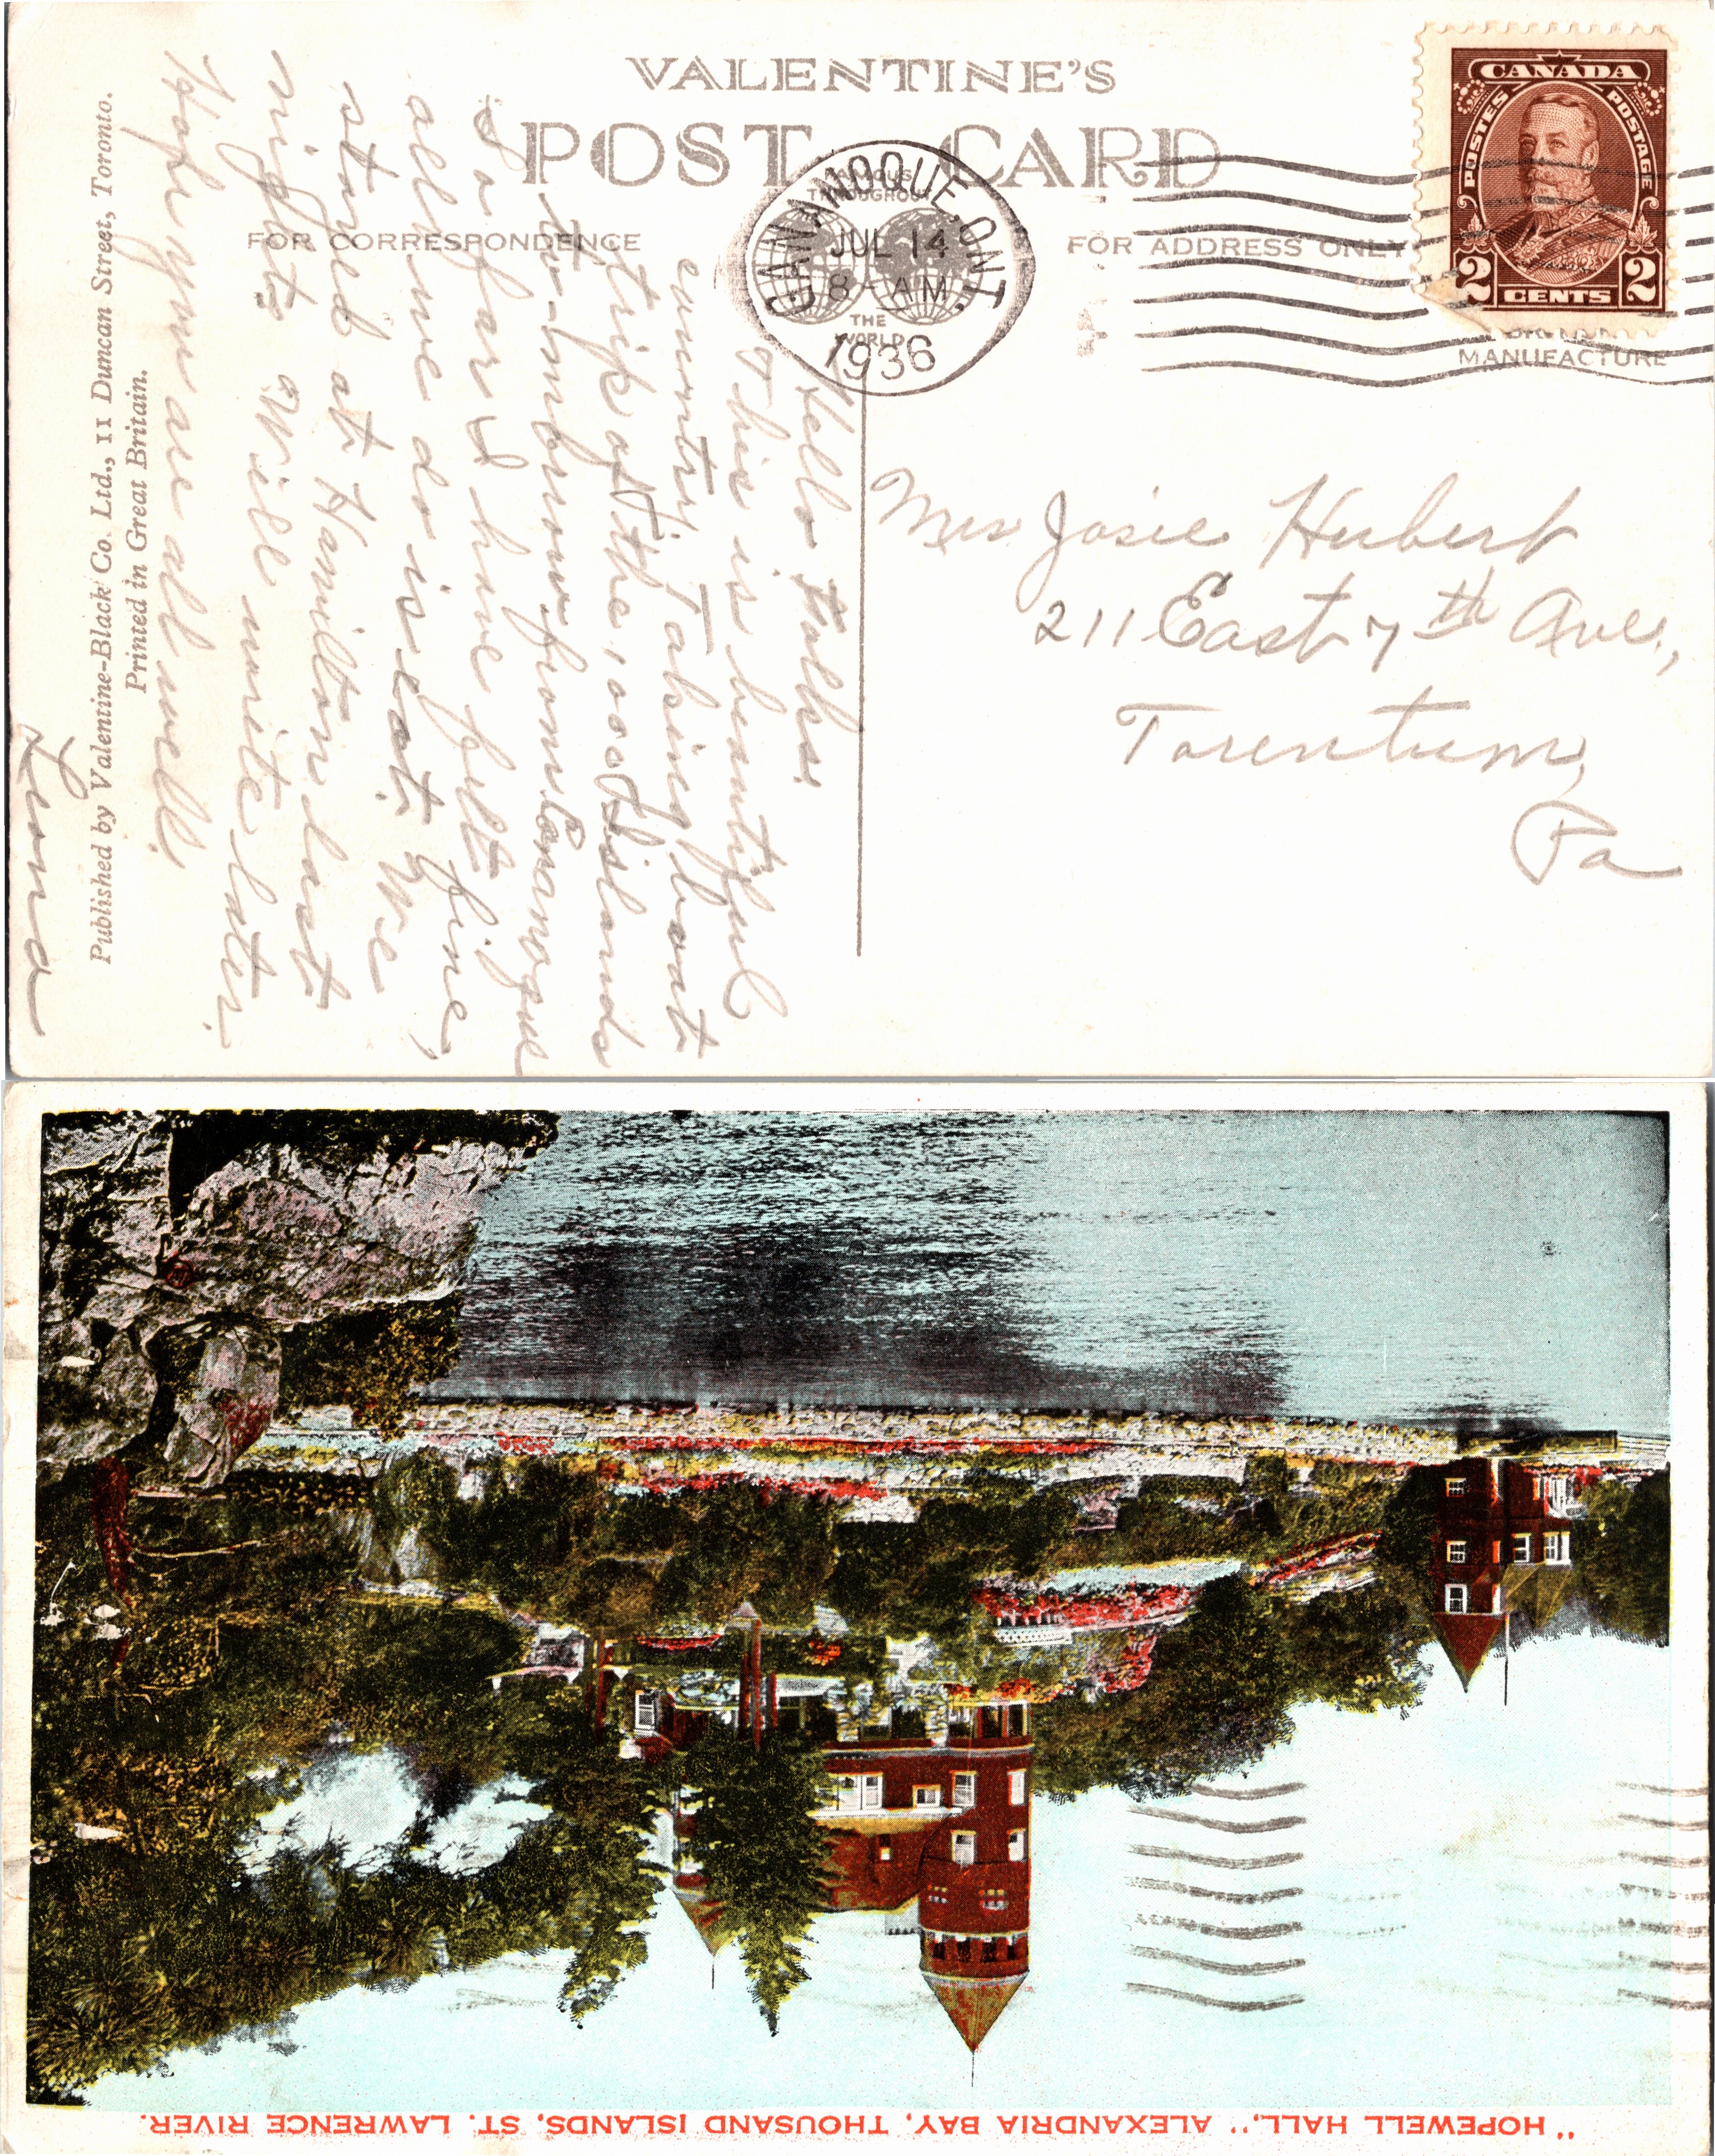 VALENTINE'S
POST CARD
FAMOUS
THROUGHOUT
THE
WORLD
FOR CORRESPONDENCE
FOR ADDRESS ONLY
MANUFACTURE
GANANOQUE, ONT.
JUL 14
8 - AM
1936
CANADA
POSTES POSTAGE
2 CENTS 2
Hello Folks:
This is beautiful
country. Taking boat
trip of the 1000 Islands
to-morrow from Gananoque
So far I have felt fine
all we do is eat. We
stayed at Hamilton last
night Will write later.
Hope you are all well.
Leona
Published by Valentine-Black Co. Ltd., 11 Duncan Street, Toronto.
Printed in Great Britain.
Mrs Josie Hubert
211 East 7th Ave.,
Tarentum,
Pa
"HOPEWELL HALL," ALEXANDRIA BAY, THOUSAND ISLANDS, ST. LAWRENCE RIVER.